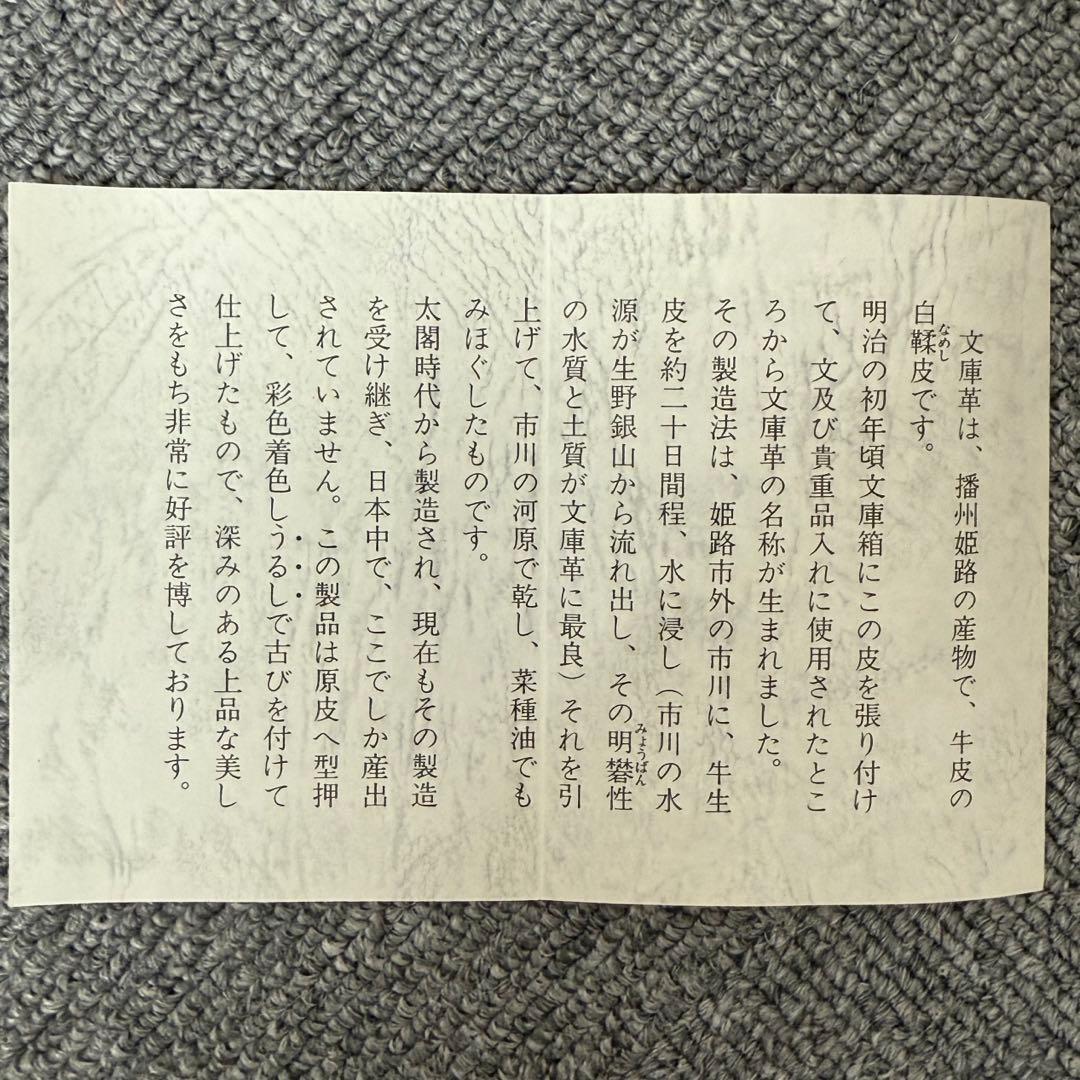 文庫革は、播州姫路の産物で、牛皮の
白鞣皮です。
なめし
明治の初年頃文庫箱にこの皮を張り付け
て、文及び貴重品入れに使用されたとこ
ろから文庫革の名称が生まれました。
その製造法は、姫路市外の市川に、牛生
皮を約二十日間程、水に浸し（市川の水
源が生野銀山から流れ出し、その明礬性
みょうばん
の水質と土質が文庫革に最良）それを引
上げて、市川の河原で乾し、菜種油でも
みほぐしたものです。
太閤時代から製造され、現在もその製造
を受け継ぎ、日本中で、ここでしか産出
されていません。この製品は原皮へ型押
して、彩色着色しうるしで古びを付けて
仕上げたもので、深みのある上品な美し
さをもち非常に好評を博しております。